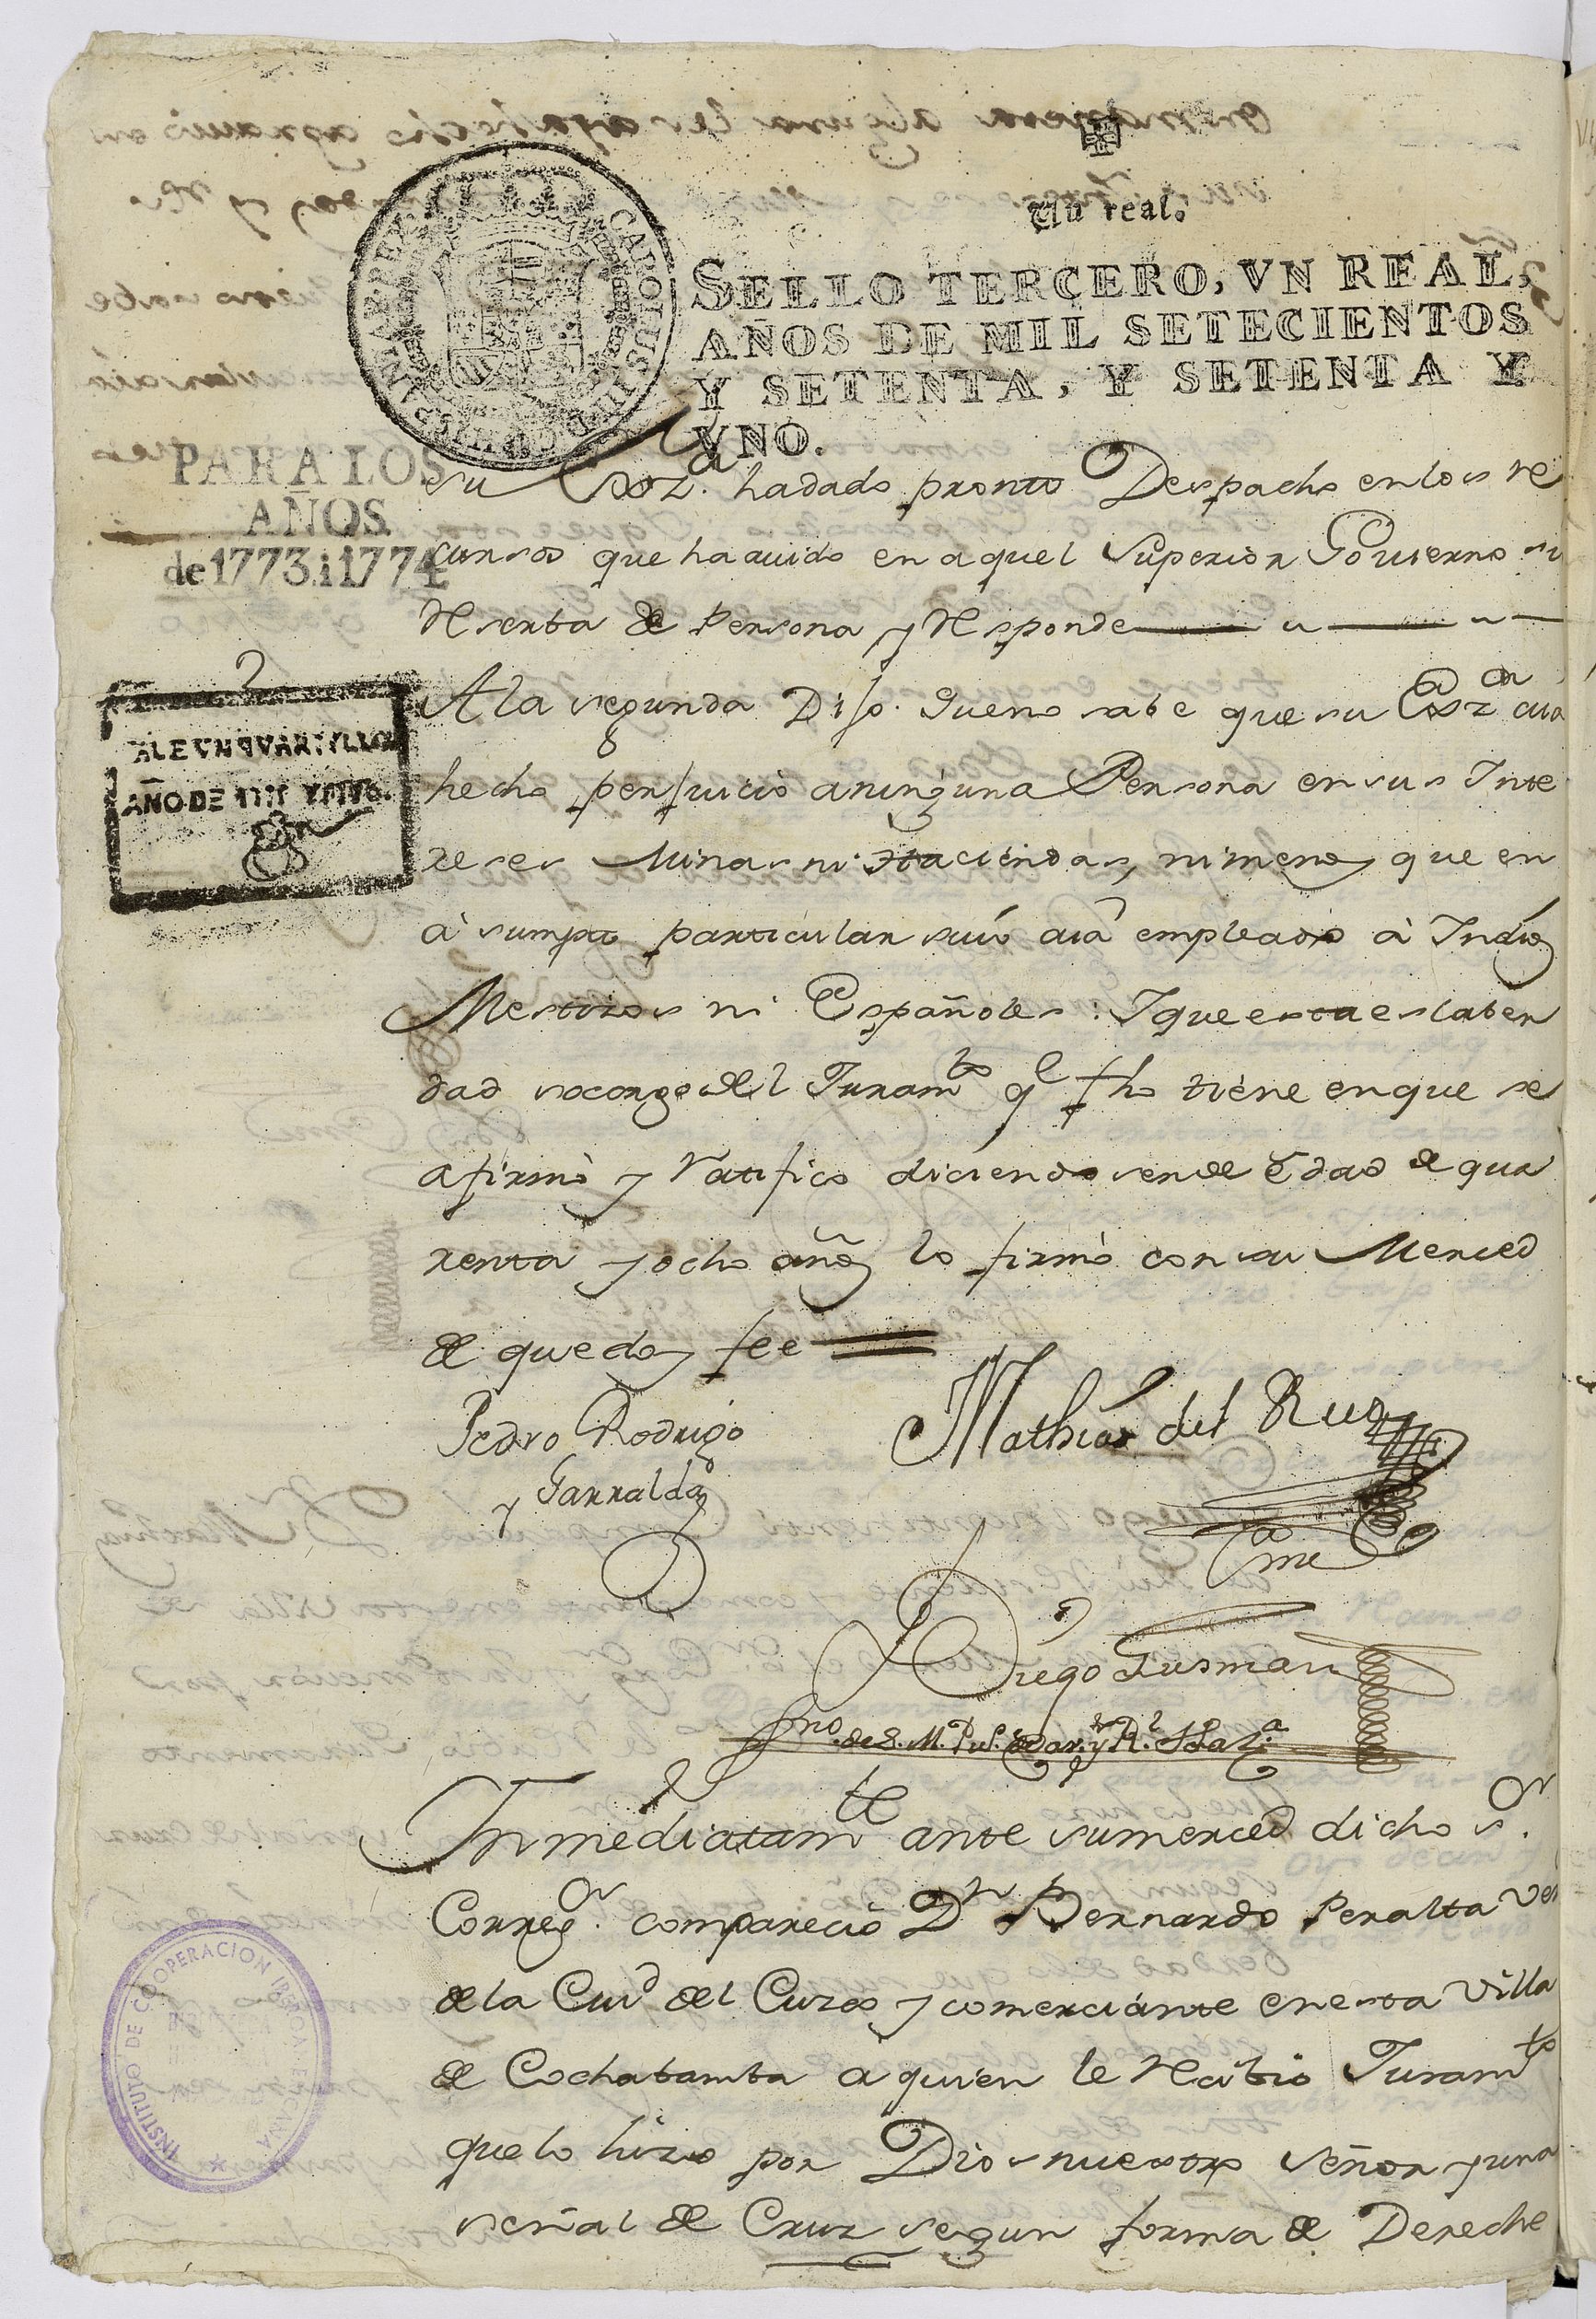 Un real.
SELLO TERCERO, VN REAL,
AÑOS DE MIL SETECIENTOS
Y SETENTA, Y SETENTA Y
VNO.
PARA LOS
AÑOS
de 1773. i 1774
VALE UN QUARTILLO
AÑO DE
su Exz.a hadado pronto Despacho enlos re
cursos que ha auido en aquel Superior Gouierno si
Reserba de Persona y Responde
2
A la segunda Dijo. Queno sabe que su Exz.a aia
hecho perjuicio aninguna Persona ensus Inte
reses Minas ni Haciendas, nimenos que en
à sumpto particular suio aia empleado à Indios
Mestizos ni Españoles: Yque esta es laber
dad socargo del Juram.to q.e fho tiene enque se
afirmò y Ratifico diciendo ser de edad de qua
renta y ocho años lo firmò con su Merced
de que doy fee
Pedro Rodrigo
y Garralda
Mathias del Rue
Ante me
Diego Gusman
Sno. de S. M. Pu.co
Inmediatam.te ante sumerced dicho s.or
Correg.or comparecio D.n Bernardo Peralta Ve
de la Ciu.d del Cuzco y comerciánte enesta Villa
de Cochabamba a quien le Recibio Juram.to
que lo hizo por Dios nuestro Señor y una
señal de Cruz segun forma de Derecho
INSTITUTO DE COOPERACION IBEROAMERICANA